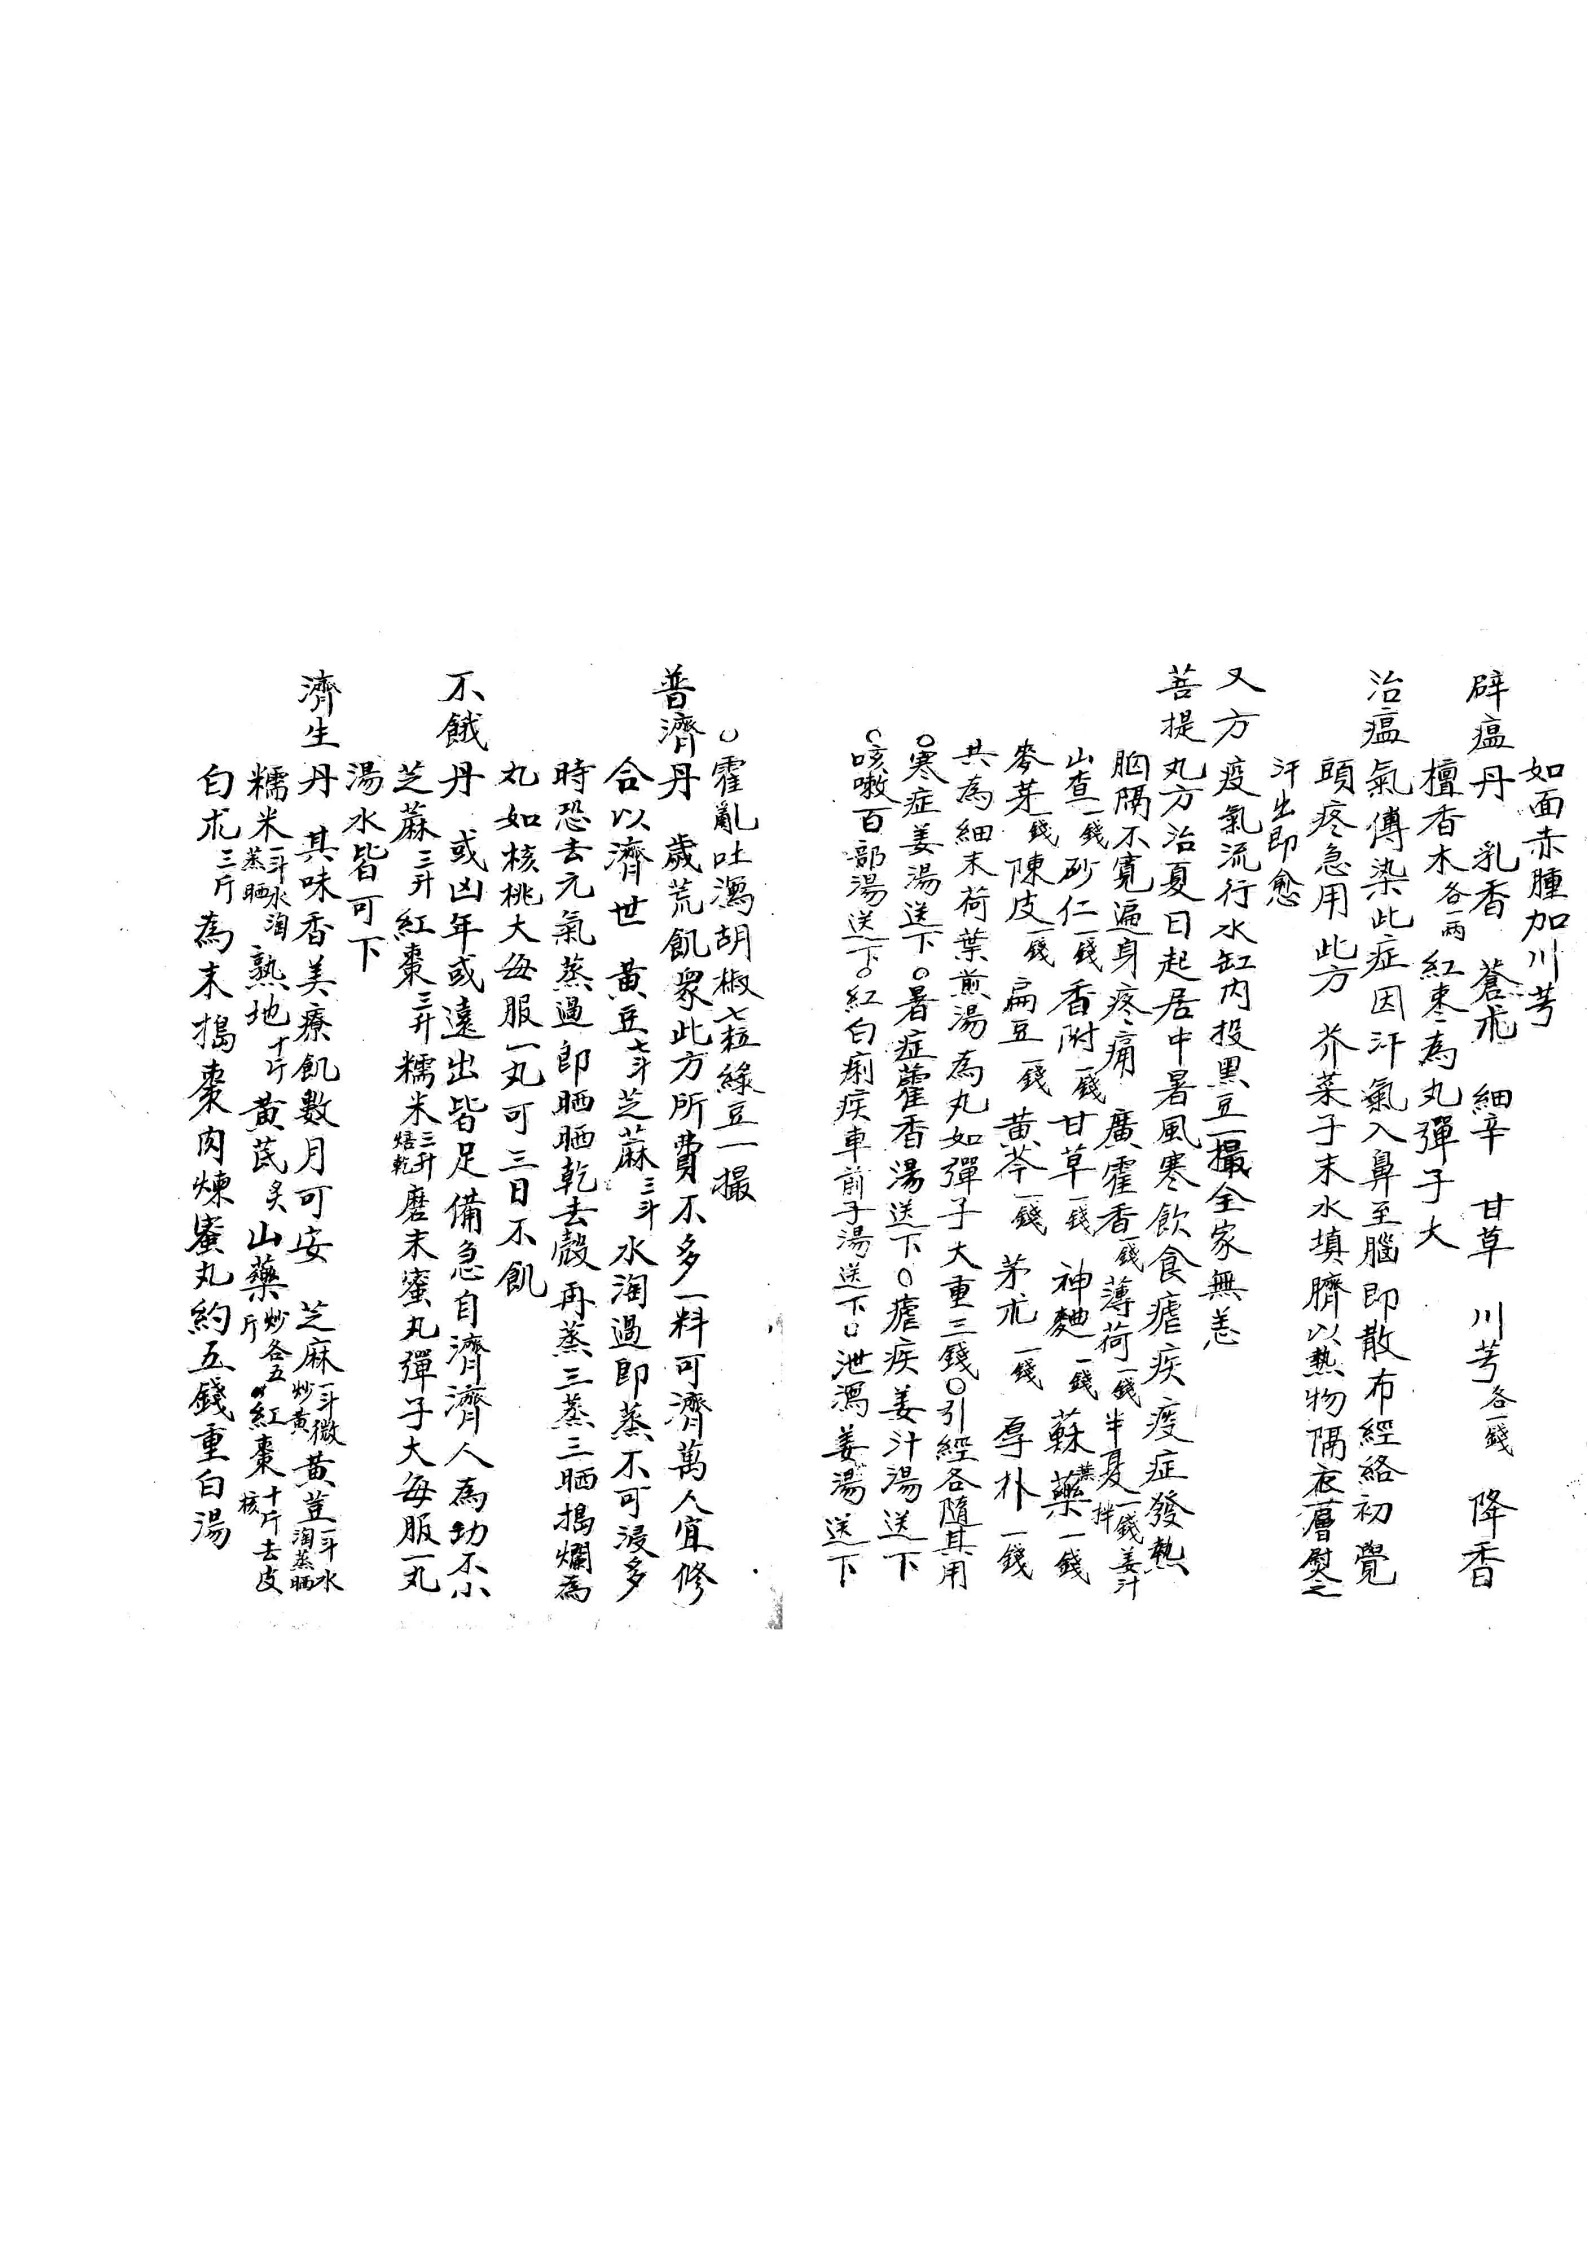 如面赤腫加川芎
辟瘟丹　乳香　蒼朮　細辛　甘草　川芎各一錢　降香
檀香木各一兩紅棗為丸彈子大
治瘟氣傳染此症因汗氣入鼻至腦即散布經絡初覺
頭疼急用此方　芥菜子末水填臍以熱物隔衣一層熨之
汗出即愈
又方疫氣流行水缸內投黑豆一撮全家無恙
菩提丸方治夏日起居中暑風寒飲食瘧疾疫症發熱
胸隔不寬遍身疼痛　廣霍香一錢薄荷一錢半夏一錢姜汁拌
山查一錢砂仁一錢香附一錢甘草一錢　神麯一錢　蘇葉藥一錢
麥芽一錢陳皮一錢扁豆一錢　黄芩一錢　茅朮一錢　厚朴一錢
共為細末荷葉煎湯為丸如彈子大重三錢○引經各隨其用
○寒症姜湯送下○暑症藿香湯送下○瘧疾姜汁湯送下
○咳嗽百部湯送下○紅白痢疾車前子湯送下○泄瀉姜湯送下
○霍亂吐瀉胡椒七粒綠豆一撮
普濟丹　歲荒飢衆此方所費不多一料可濟萬人宜修
合以濟世　黃豆七斗芝蔴三斗水淘過即蒸不可浸多
時恐去元氣蒸過即晒晒乾去殼再蒸三蒸三晒搗爛為
丸如核桃大每服一丸可三日不飢
不餓丹　或凶年或遠出皆足備急自濟濟人為功不小
芝蔴三升紅棗三升糯米三升焙乾磨末蜜丸彈子大每服一丸
湯水皆可下
濟生丹　其味香美療飢數月可安　芝麻一斗微炒黃黃荳一斗水淘蒸晒
糯米一斗水淘蒸晒熟地十斤黃芪炙山藥炒各五斤紅棗十斤去皮核
白朮三斤為末搗棗肉煉蜜丸約五錢重白湯